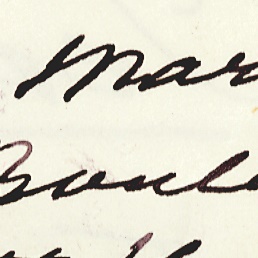 Mar
Boul